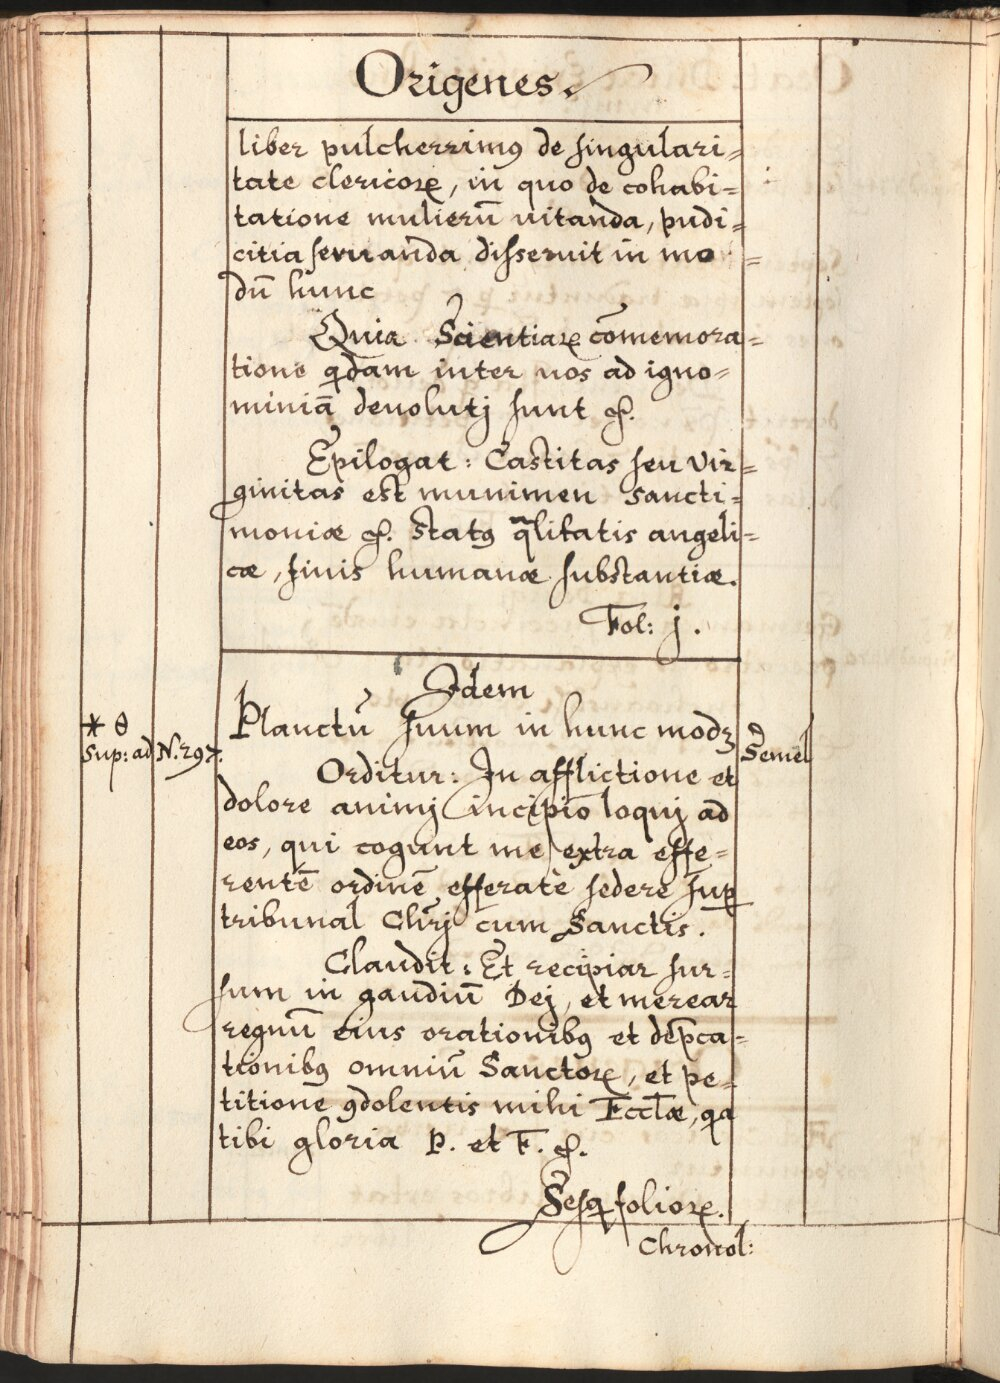 Origenes.
liber pulcherrimꝯ de singulari=
tate clericoꝝ, in quo de cohabi=
tatione mulierū uitanda, pudi=
citia seruanda disseruit in mo=
dū hunc
Quia Scientiaꝝ com̄emora=
tione q̄dam inter nos ad igno=
miniā deuolutj sunt &.
Epilogat: Castitas seu vir=
ginitas est munimen sancti=
moniæ &. statꝯ q̄litatis angeli=
cæ, finis humanæ substantiæ.
Fol: j.
Idem
Planctū suum in hunc modꝫ
* θ
Sup: ad N. 297.
Semel
Orditur: In afflictione et
dolore animj incipio loquj ad
eos, qui cogunt me extra effe=
rentē ordinē efferatè sedere suꝑ
tribunal Chr̄j cum Sanctis.
Claudit: Et recipiar sur=
sum in gaudiū Dej, et merear
regnū eius orationibꝯ et dep̄ca=
tionibꝯ omniū Sanctoꝝ, et pe=
titione ꝯdolentis mihi Eccl̄æ, qa
tibi gloria P. et F. &.
Sesq̄ folioꝝ.
Chronol: